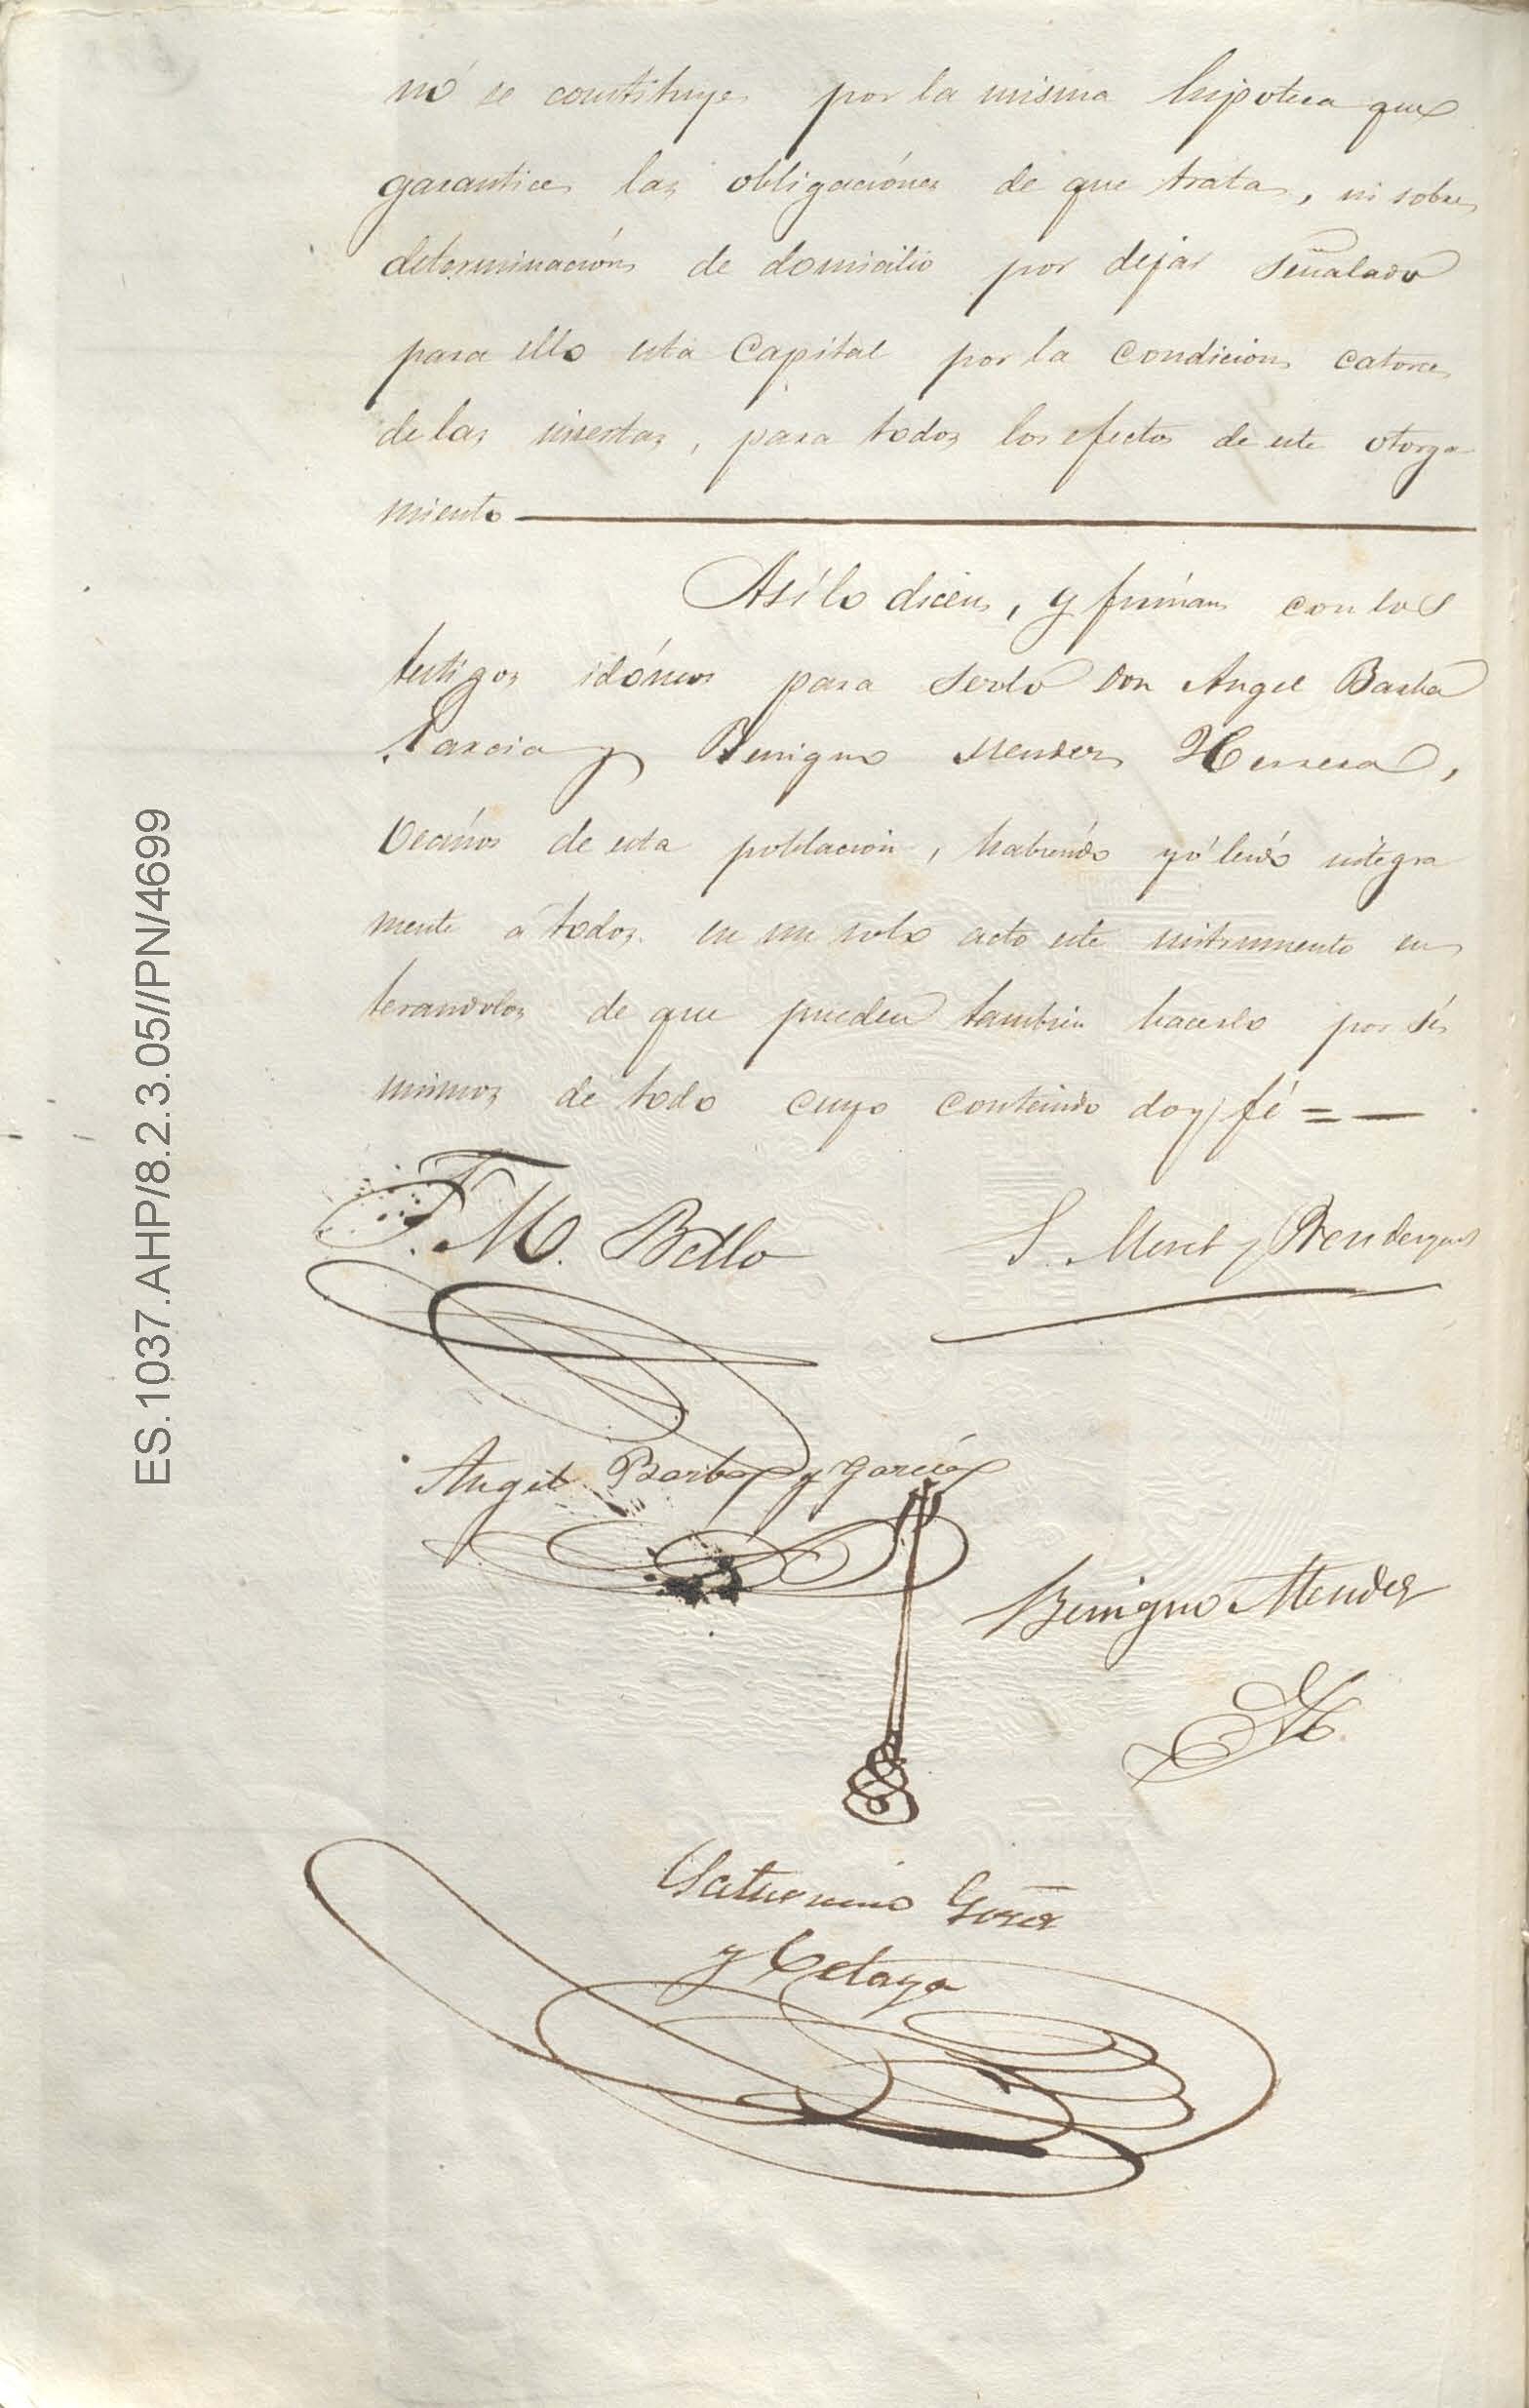 nó se constituye por la misma hipoteca que
garantice las obligaciónes de que trata, ni sobre
determinación de domicilio por dejar señalado
para ello esta Capital por la condicion catorce
de las insertas, para todos los efectos de este otorga
miento
Así lo dicen, y firman con los
testigos idóneos para serlo Don Angel Barba
Garcia y Benigno Mendez Herrera,
vecinos de esta poblacion, habiendo yó leido integra
mente á todos en un solo acto este instrumento en
terandolos de que pueden tambien hacerlo por sí
mismos de todo cuyo contenido doy fé = —
F. M. Bello
S. Moret y Prendergast
Angel Barba y García
Benigno Mendez
H.
Saturnino
y Celaya
ES.1037.AHP/8.2.3.05//PN/4699